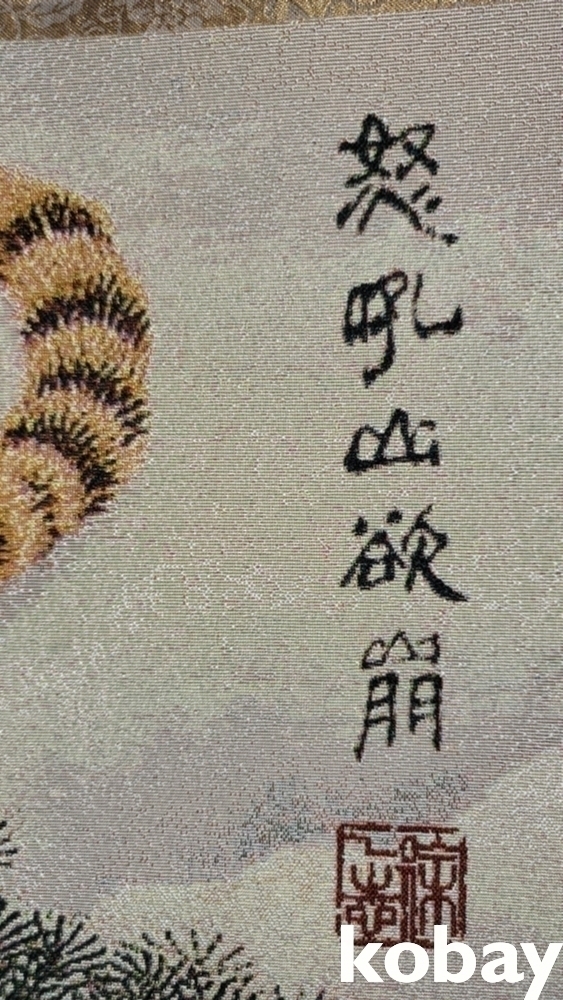 怒吼山欲崩
kobay